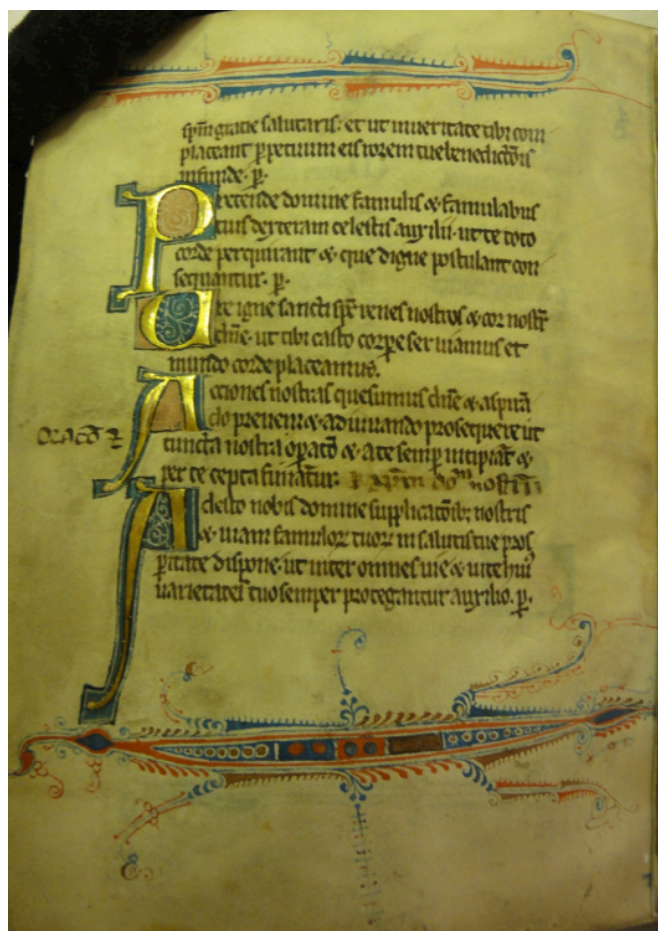 spm̄ gratie salutaris: et ut in ueritate tibi com
placeant ꝑpetuum eis rorem tue benedictōis
infunde. ꝑ.
Pretende domine famulis & famulabus
tuis dexteram celestis auxilii. ut te toto
corde perquirant & que digne postulant con
sequantur. ꝑ.
Ure igne sancti sp̄c renes nostros & cor nostr̄
dn̄e. ut tibi casto corꝑe seruiamus et
mundo corde placeamus.
Acciones nostras quesumus dn̄e & aspirā
do preueni & adiuuando prosequere ut
cuncta nostra oꝑatō & a te semꝑ incipiat &
per te cepta finiatur. nostrū
Adesto nobis domine supplicatōibꝫ nostris
& uiam famuloꝝ tuoꝝ in salutis tue pros
ꝑitate dispone. ut inter omnes uie & uite huiꝰ
uarietates tuo semper protegantur auxilio. ꝑ.